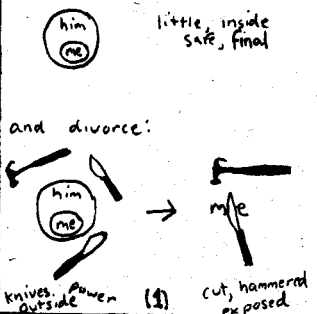 him
me
little, inside
safe, final
and divorce:
him
me
me
knives, power
outside
(1)
cut, hammered
exposed